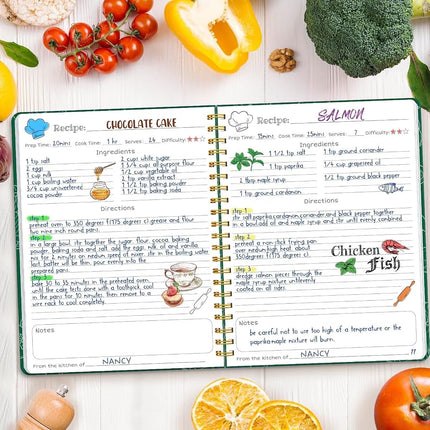 Recipe: CHOCOLATE CAKE
Prep Time: 20mins Cook Time: 1 hr Serves: 24 Difficulty:
Ingredients
1 tsp salt
2 eggs
1 cup milk
1 cup boiling water
3/4 cup unsweetened
cocoa powder
2 cups white sugar
1 3/4 cup all purpose flour
1/2 cup vegetable oil
2 tsp vanilla extract
1 1/2 tsp baking soda
1 1/2 tsp baking powder
Directions
step 1
preheat oven to 350 degrees f (175 degrees c) grease and flour
two nine inch round pans.
step 2
in a large bowl, stir together the sugar, flour, cocoa, baking
powder, baking soda and salt, add the eggs, milk, oil and vanilla
mix for 2 minutes on medium speed of mixer. stir in the boiling water
last. batter will be thin. pour evenly into the
prepared pans.
step 3
bake 30 to 35 minutes in the preheated oven,
until the cake tests done with a toothpick. cool
in the pans for 10 minutes, then remove to a
wire rack to cool completely.
Notes
From the kitchen of NANCY
Recipe: SALMON
Prep Time: 15mins Cook Time: 25mins Serves: 7 Difficulty:
Ingredients
1 1/2 tsp salt
1 tsp paprika
2 tbsp maple syrup
1 tsp ground cardamon
1 tsp ground coriander
1/4 cup grapeseed oil
1/2 tsp ground black pepper
Directions
step 1
stir salt, paprika, cardamon, coriander, and black pepper together
in a bowl, add oil and maple syrup and stir until evenly combined
step 2
preheat a non stick frying pan
over medium high heat, about
350 degrees f (175 degrees c).
Chicken
Fish
step 3
dredge salmon pieces through the
maple syrup mixture until evenly
coated on all sides.
Notes
be careful not to use too high of a temperature or the
paprika-maple mixture will burn.
From the kitchen of NANCY
11